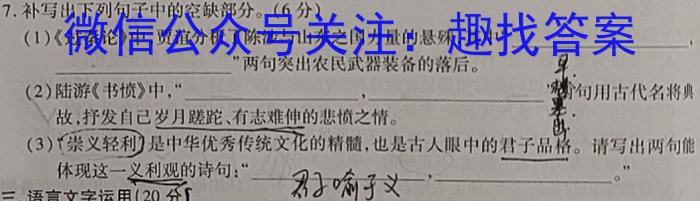 7. 补写出下列句子中的空缺部分。(6分)
微信公众号关注：趣找答案
(1)《过秦论》中，贾谊分析了陈涉与山东之国力量的悬殊，
"两句突出农民武器装备的落后。
(2)陆游《书愤》中，"___，___"两句用古代名将典
故，抒发自己岁月蹉跎、有志难伸的悲愤之情。
(3)"崇义轻利"是中华优秀传统文化的精髓，也是古人眼中的君子品格。请写出两句能
体现这一义利观的诗句："___君子喻于义___，___。"
三、语言文字运用(20分)